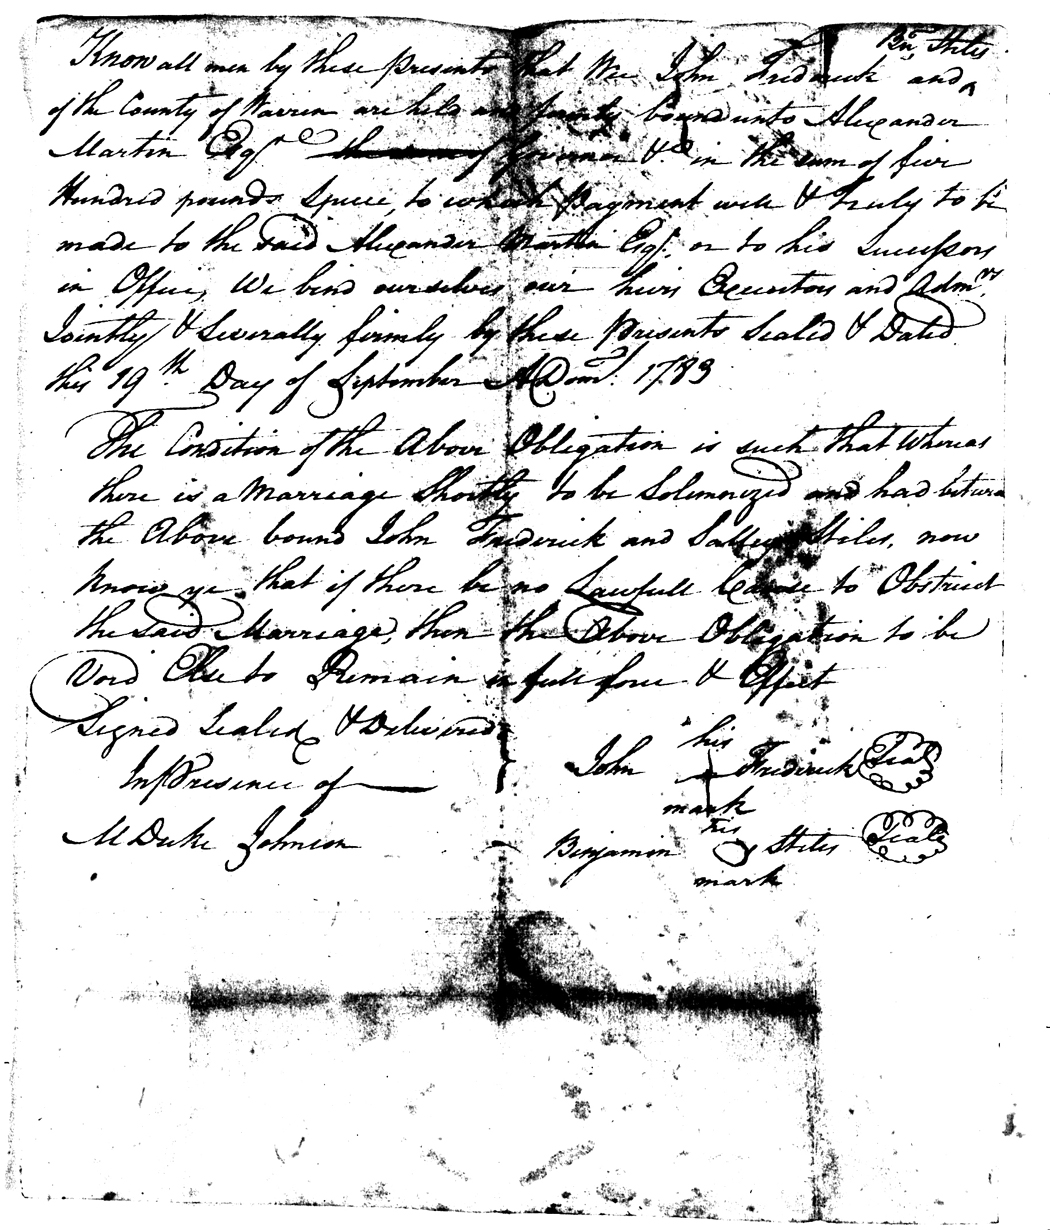 Bn Stiles
Know all men by these presents that Wee John Frederick and
of the County of Warren are held and firmly bound unto Alexander
Martin Esqr. of Governor &c in the sum of five
Hundred pounds Specie, to which Payment well & Truly to be
made to the said Alexander Martin Esqr. or to his Successors
in Office, We bind ourselves our heirs Executors and Admrs
Jointly & Severally firmly by these Presents Sealed & Dated
this 19th Day of September A Dom. 1783
The Condition of the Above Obligation is such that Whereas
there is a Marriage Shortly to be Solemnized and had between
the Above bound John Frederick and Salley Stiles, now
know ye that if there be no Lawfull Cause to Obstruct
the said Marriage, then the Above Obligation to be
Void Else to Remain in full force & Effect
Signed Sealed & Delivered
In Presence of
M Duke Johnson
his
John Frederick Seal
mark
his
Benjamon Stiles Seal
mark